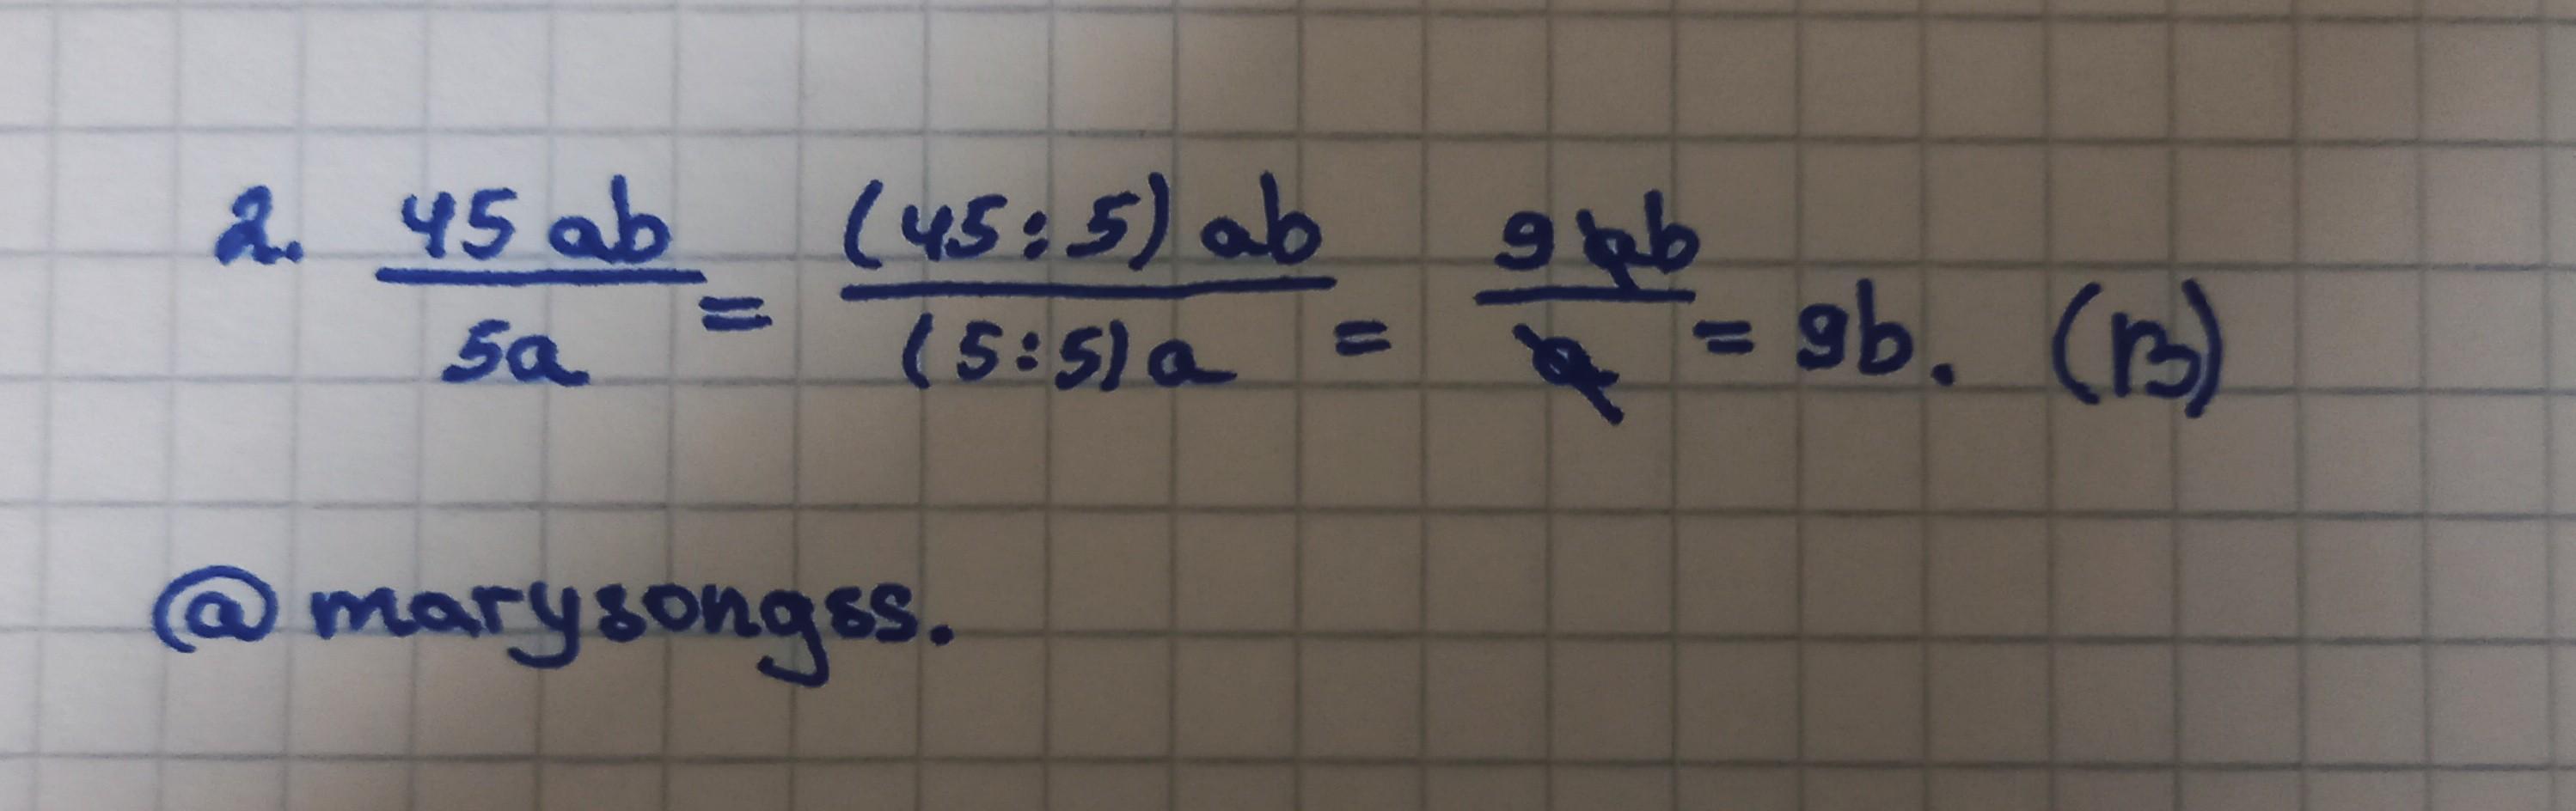 2. 45ab/5a = (45:5)ab/(5:5)a = 9ab/a = 9b. (B)
@marysongss.